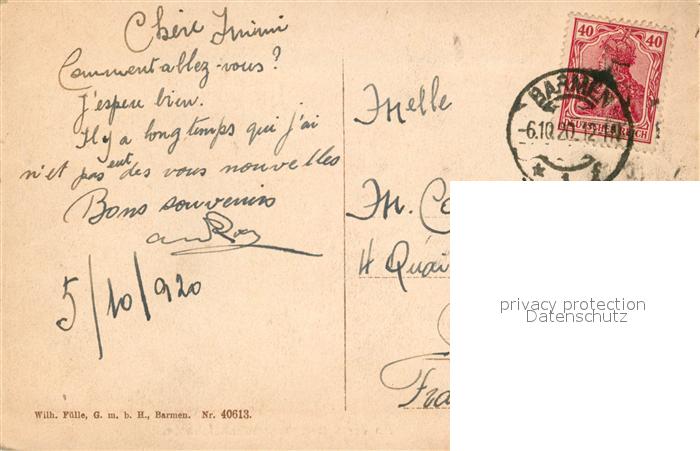 Chère Mimi
Comment allez-vous?
J'espeu bien.
Il y a longtemps qui j'ai
n'et pas eut des vous nouvelles
Bons souvenirs
5/10/920
Wilh. Fülle, G. m. b. H., Barmen. Nr. 40613.
40 40
DEUTSCHES REICH
BARMEN
-6.10.20. 12-1N
* 1 f
Melle
M.
4 Quai
privacy protection
Datenschutz